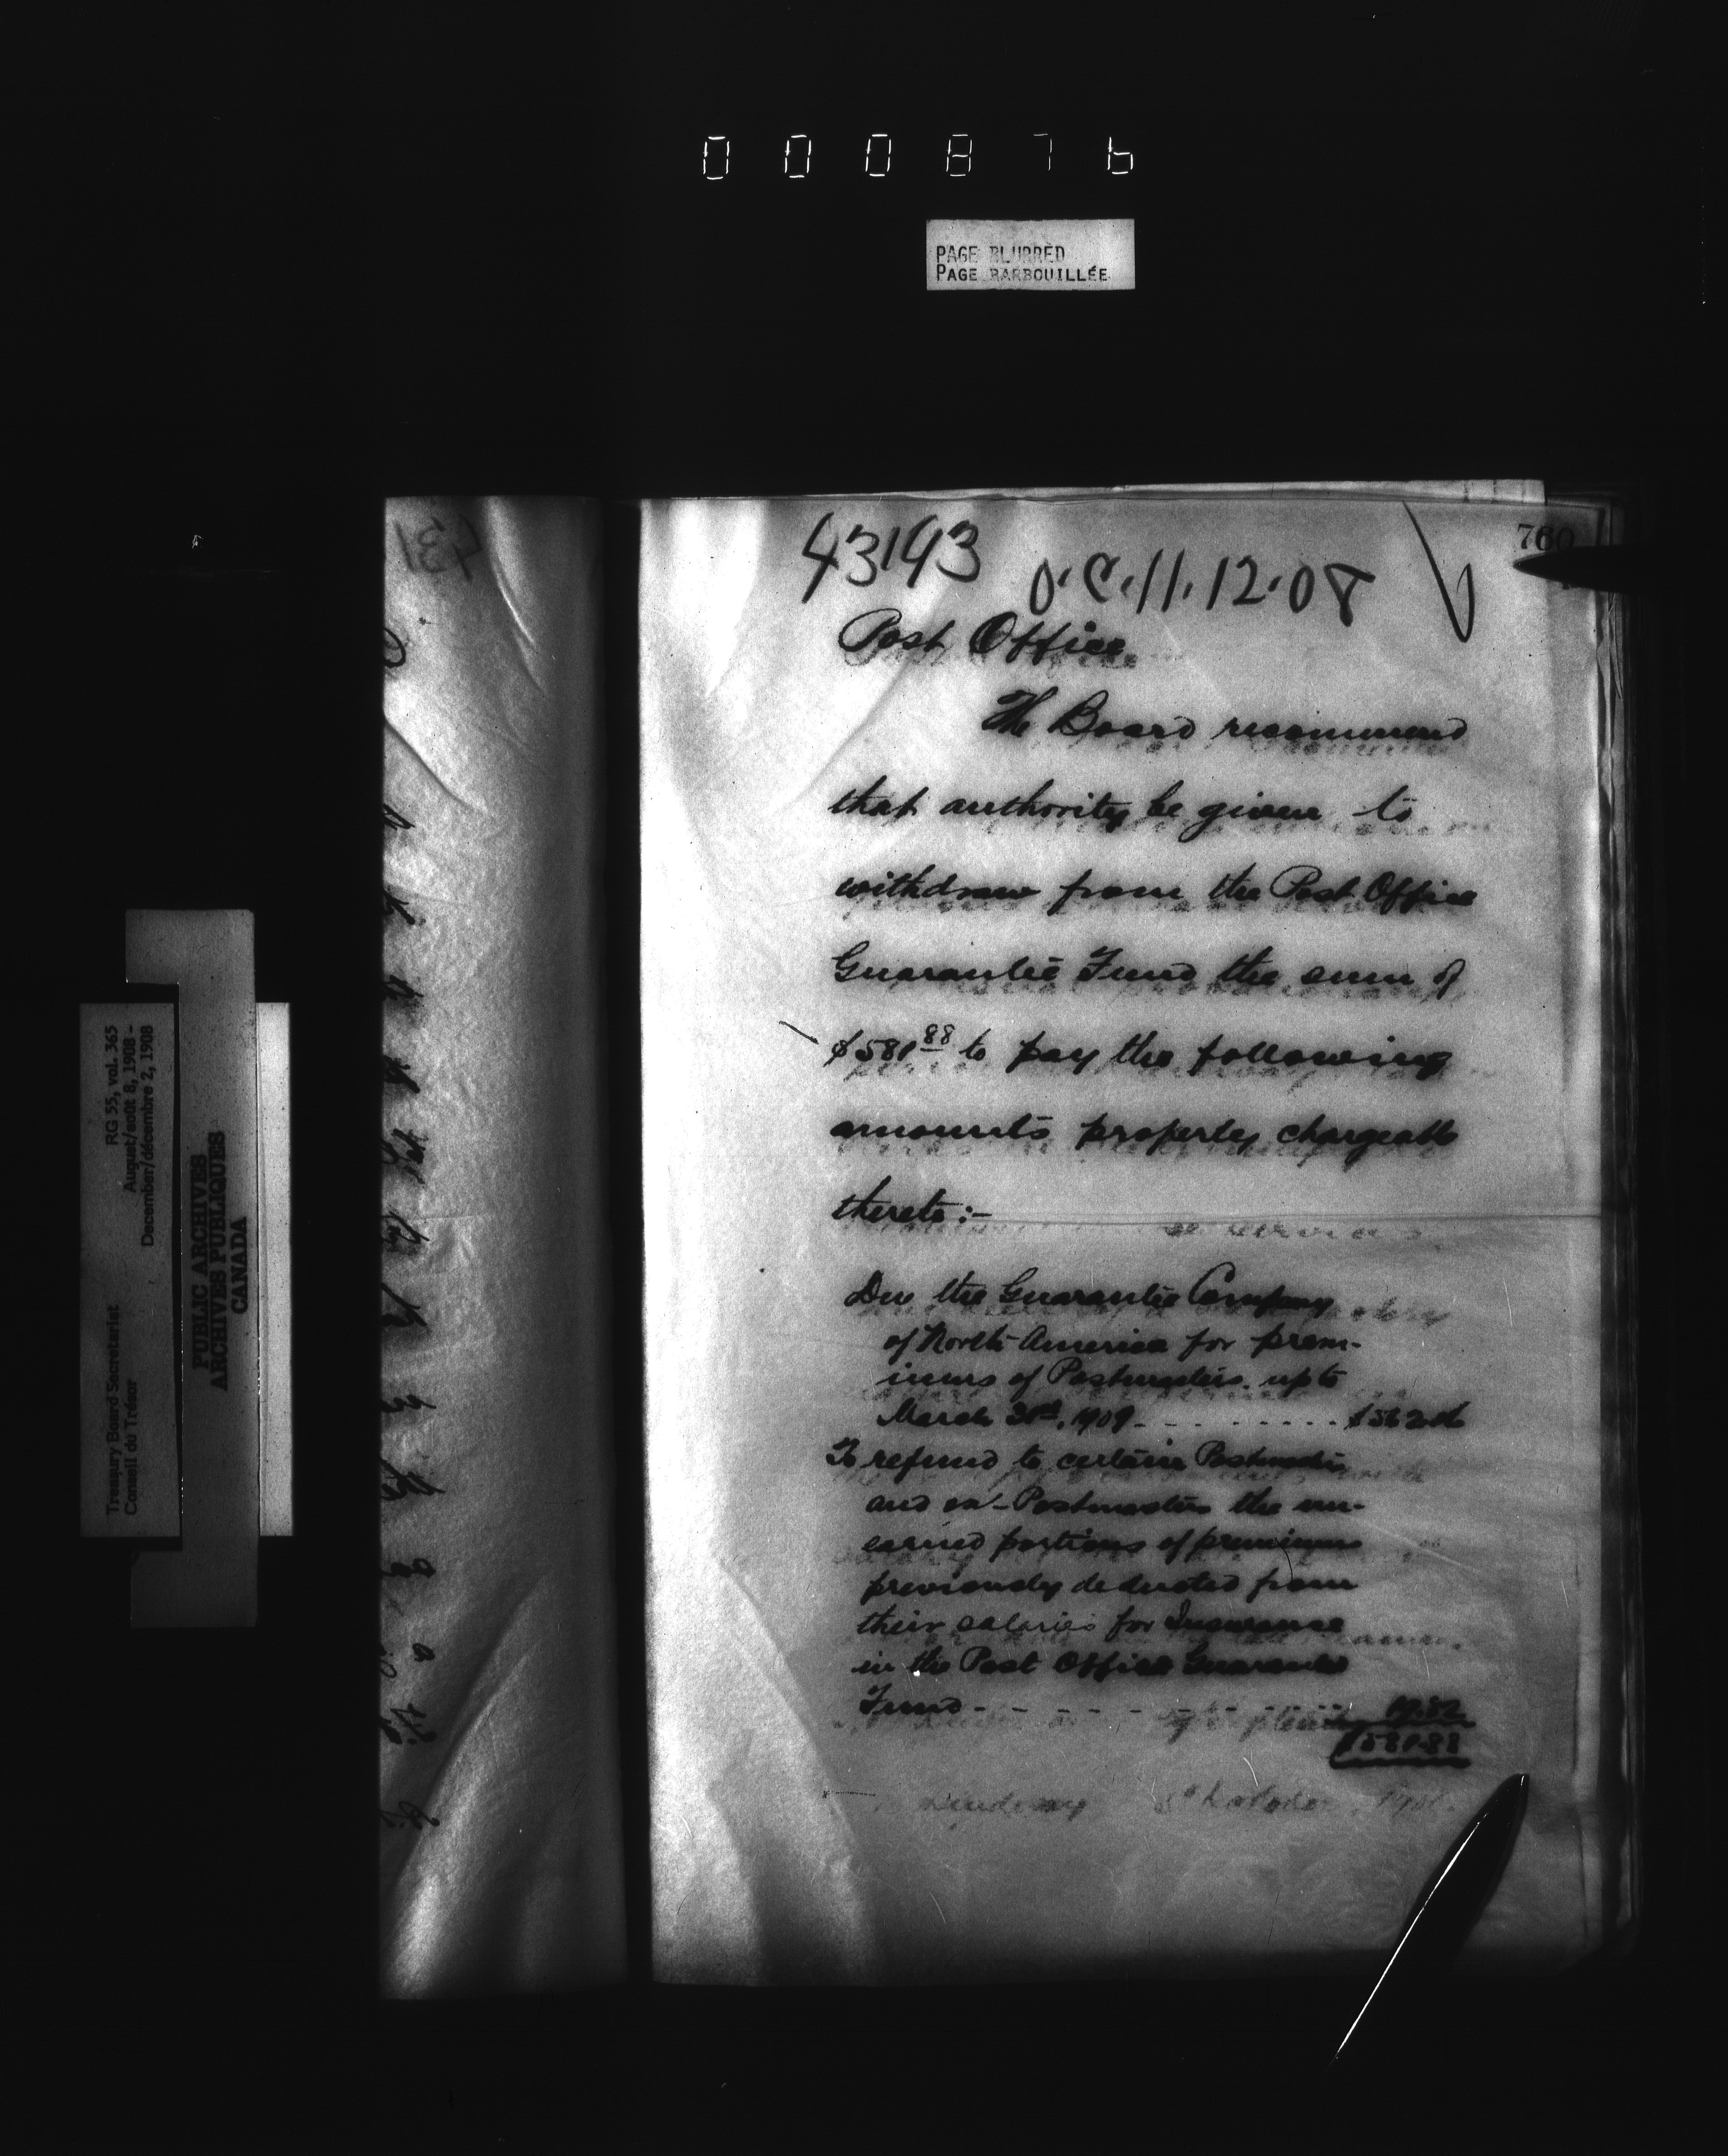 000876
PAGE BLURRED
PAGE BARBOUILLÉE
760
43143 O.C. 11.12.08
Post Office.
The Board recommend
that authority be given to
withdraw from the Post Office
Guarantee Fund the sum of
$581 88 to pay the following
amounts properly chargeable
thereto:-
Due the Guarantee Company
of North America for prem-
iums of Postmasters up to
March 31st, 1909 - - - - - - - - - $562.06
To refund to certain Postmasters
and ex-Postmasters the un-
earned portions of premiums
previously deducted from
their salaries for Insurance
in the Post Office Guarantee
Fund - - - - - - - - - - 19.82
$581.88
Treasury Board Secretariat RG 55, vol. 365
Conseil du Trésor August/août 8, 1908 -
December/décembre 2, 1908
PUBLIC ARCHIVES
ARCHIVES PUBLIQUES
CANADA